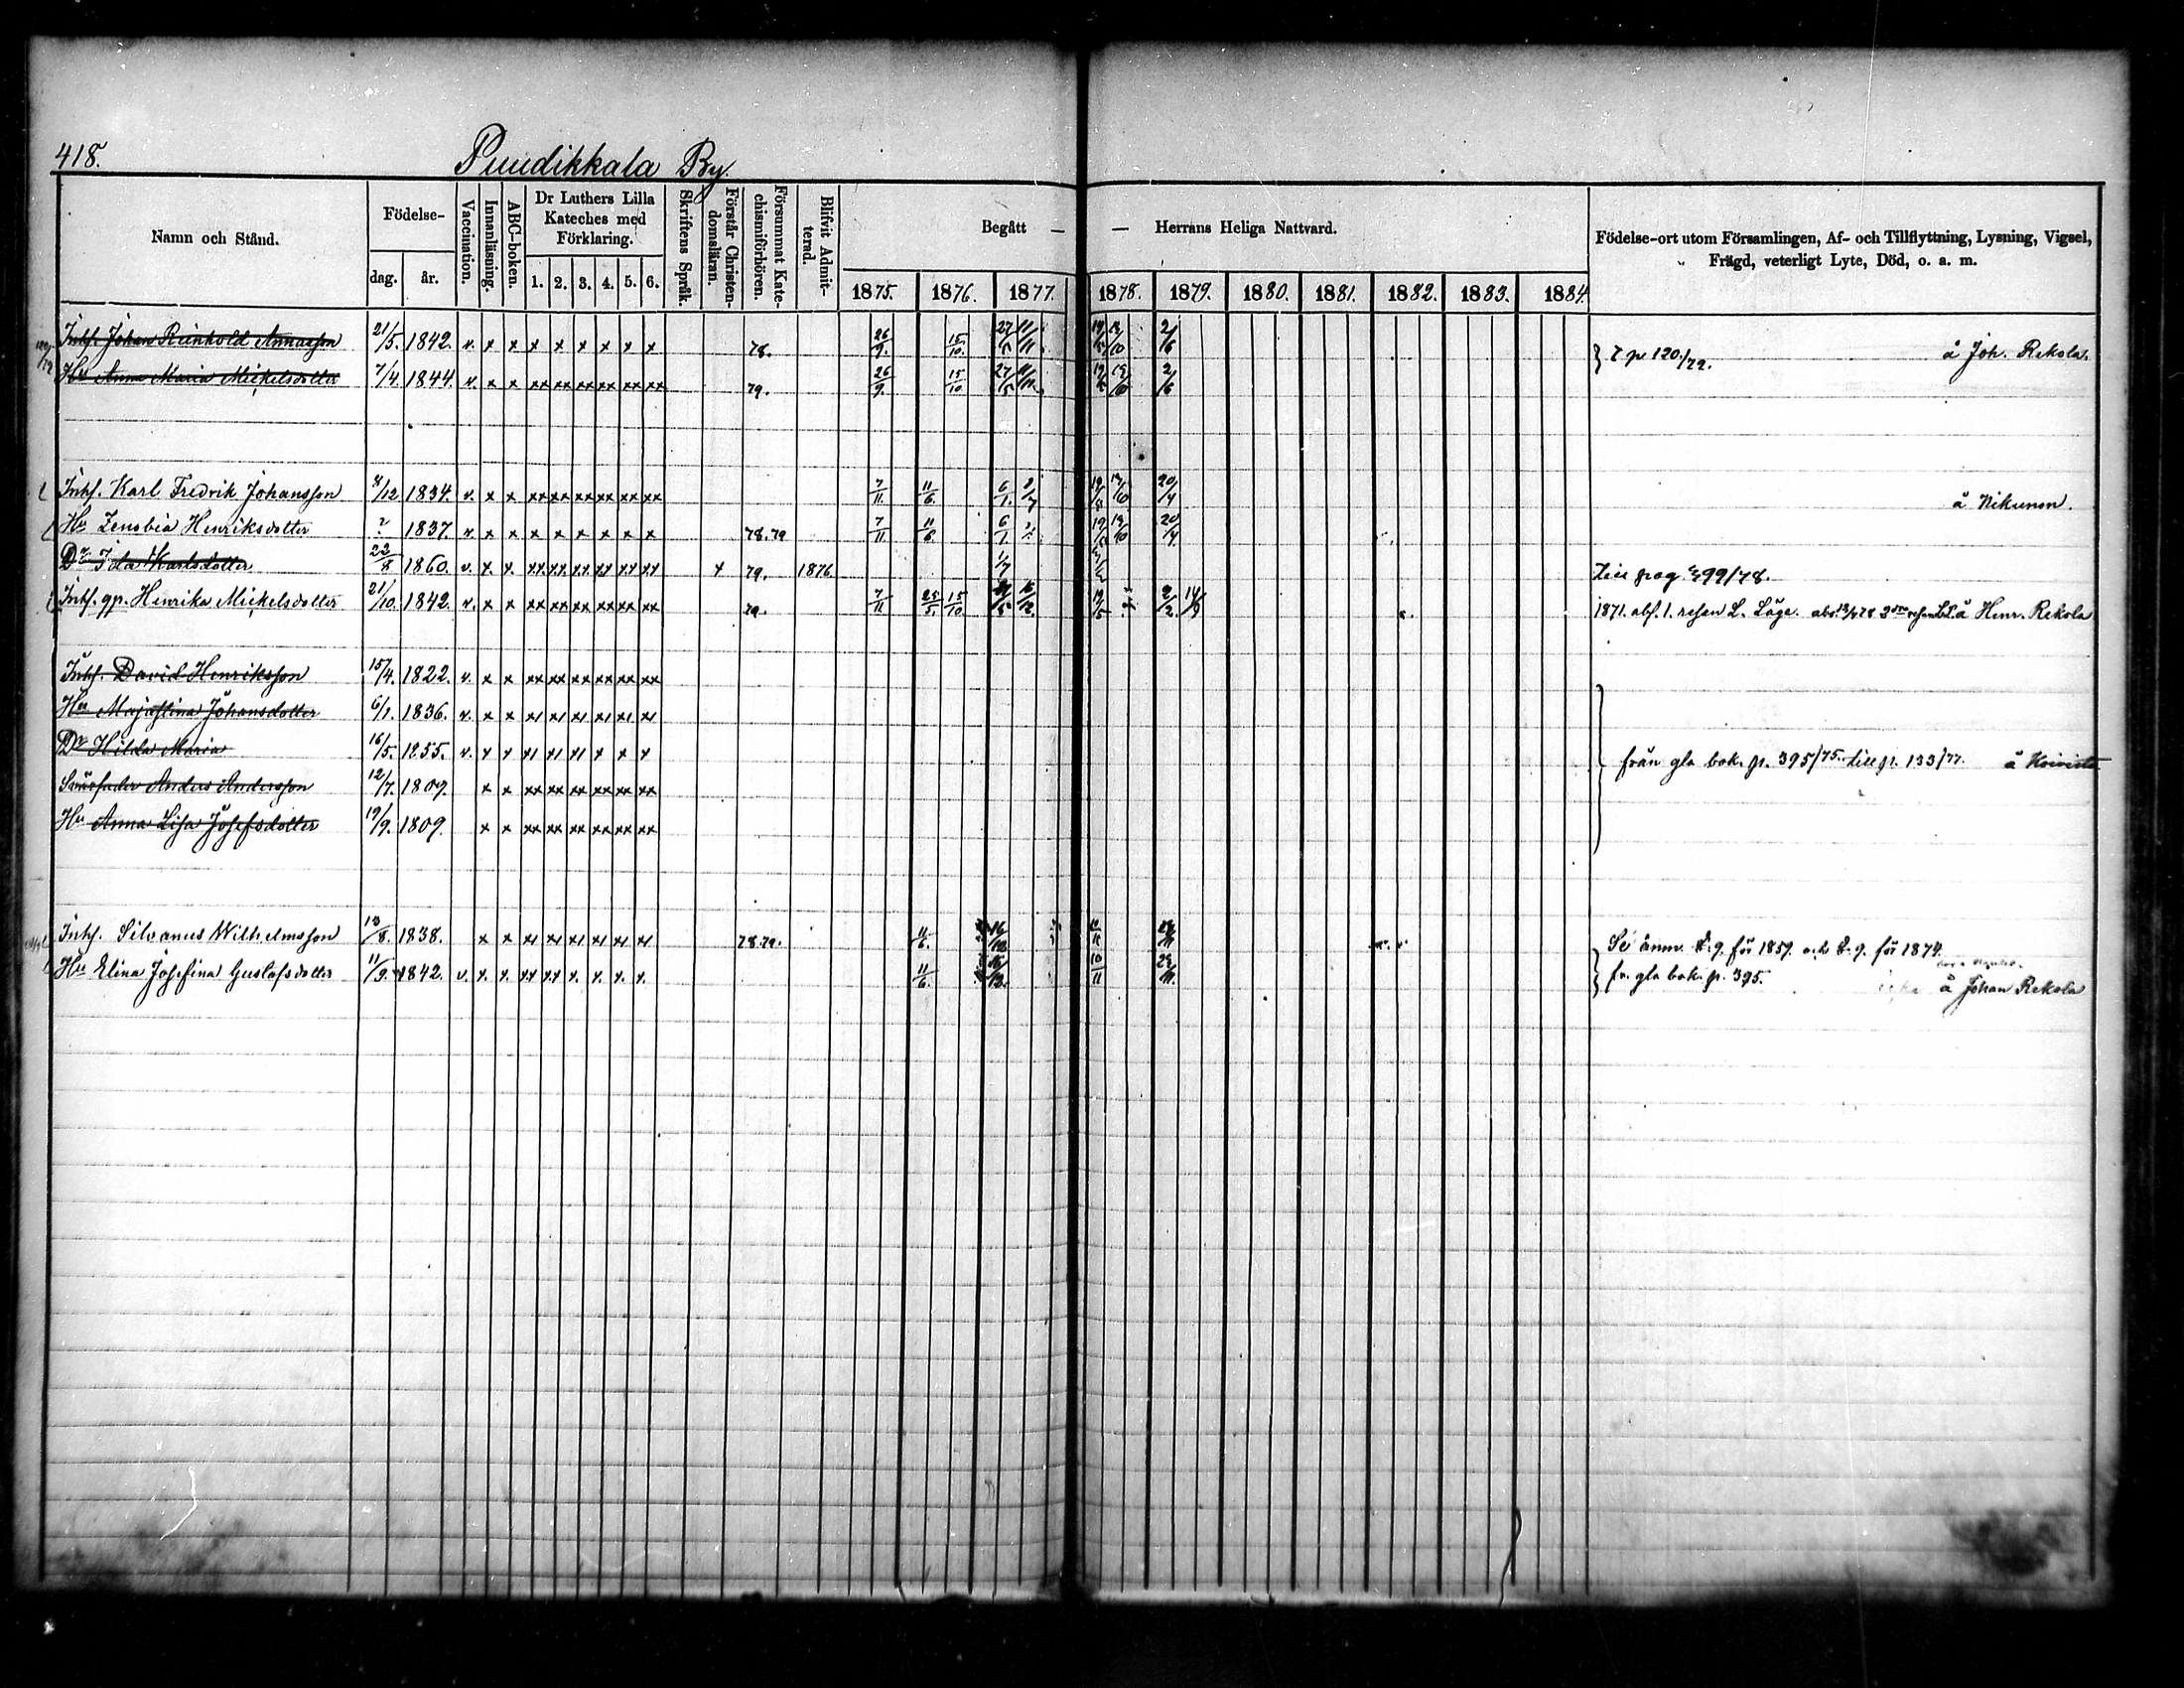 418.
Puudikkala By.
Namn och Stånd.
Födelse-
dag.
år.
Vaccination.
Innanläsning.
ABC-boken.
Dr Luthers Lilla Kateches med Förklaring.
1. 2. 3. 4. 5. 6.
Skriftens Språk.
Förstår Christendomsläran.
Försummat Katechismiförhören.
Blifvit Admitterad.
Begått — — Herrans Heliga Nattvard.
1875. 1876. 1877. 1878. 1879. 1880. 1881. 1882. 1883. 1884
Födelse-ort utom Församlingen, Af- och Tillflyttning, Lysning, Vigsel,
Frägd, veterligt Lyte, Död, o. a. m.
Inhs. Johan Reinhold Annasson 21/5. 1842. v. x x x x x x x x 78. 26/9. 15/10. 27/5 11/11 2/6 p 120/79. å Joh. Rekola.
Hu Anna Maria Mickelsdotter 7/4 1844. v. x x xx xx xx xx xx xx 79. 26/9. 15/10 27/5 11/11 2/6
Inhs. Karl Fredrik Johansson 8/12 1834. v. x x xx xx xx xx xx xx 7/11. 11/6. 6/1. 20/4 å Nikunen.
Hu Zenobia Henriksdotter ? 1837. v. x x x x x x x x 78.79 7/11 11/6 6/1. 20/4
Dr Ida Karlsdotter 22/8 1860. v. x. x. xx xx xx xx xx xx x 79. 1876 1/7 Till pag 99/78.
Inhs. gp. Henrika Mickelsdotter 21/10. 1842. v. x x xx xx xx xx xx xx 79. 7/11 25/5 15/10 2/2. 14/9 1871. abs. 1. resan L. Läge. å Henr. Rekola
Inhs. David Henriksson 15/4. 1822. v. x x xx xx xx xx xx xx
Hu Majastina Johansdotter 6/1. 1836. v. x x x x x x x x
Dr Hilda Maria 16/5. 1855. v. x x x x x x x x från gla bok. p. 395/75. till p. 133/77. å Koivisto
Svärfader Anders Andersson 12/7. 1809. x x xx xx xx xx xx xx
Hu Anna Lisa Josefsdotter 19/9. 1809. x x xx xx xx xx xx xx
Inhs. Silvanus Wilhelmsson 13/8. 1838. x x x x x x x x 78.79. 11/6. 16/12 Se anm. k. 9. för 1859. och k. 9. för 1874.
Hu Elina Josefina Gustafsdotter 11/9. 1842. v. x. x. xx xx x. x. x. x. 11/6. 16/12. 10/11 fr. gla bok. p. 395. å Johan Rekola